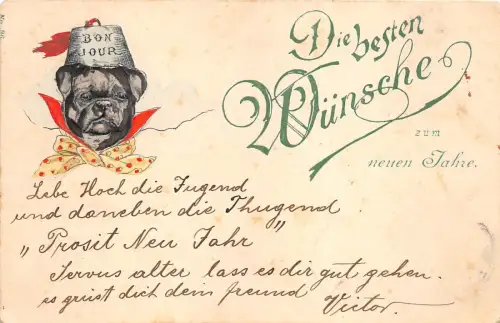 BON
JOUR
Die besten
Wünsche
zum
neuen Jahre.
Lebe Hoch die Jugend
und daneben die Thugend.
„Prosit Neu Jahr"
Servus alter lass es dir gut gehen.
es grüst dich dein freund
Victor.